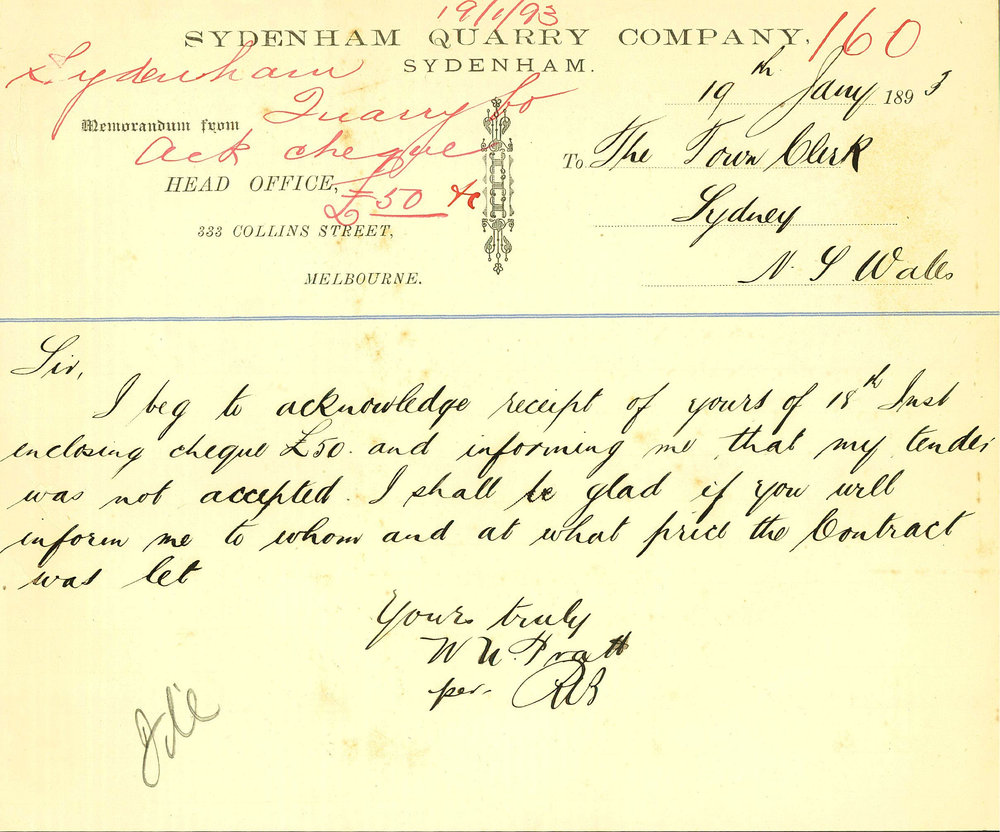 19/1/93
SYDENHAM QUARRY COMPANY,
160
SYDENHAM.
Sydenham
Quarry Co
Ack cheque
£50 &c
Memorandum from
HEAD OFFICE,
333 COLLINS STREET,
MELBOURNE.
19th Jany 1893
To The Town Clerk
Sydney
N. S Wales
Sir,
I beg to acknowledge receipt of yours of 18th Inst
enclosing cheque £50. and informing me that my tender
was not accepted. I shall be glad if you will
inform me to whom and at what price the Contract
was let
Yours truly
Pratt
per